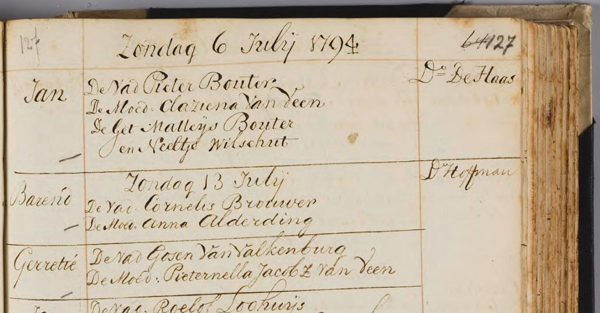 Zondag 6 Julij 1794
127
Jan
De Vad Pieter Bouter
Ds De Haas
De Moed. Claziena Van Veen
De Get Matteÿs Bouter
en Neeltje Wilschut
Zondag 13 Julij
Ds Hoffman
Barend
De Vad. Cornelis Brouwer
De Moed. Anna Alderding
Gerretie
De Vad Gosen Van Valkenburg
De Moed. Pieternella Jacob Z van Veen
De Vad. Roelof Loohuijs